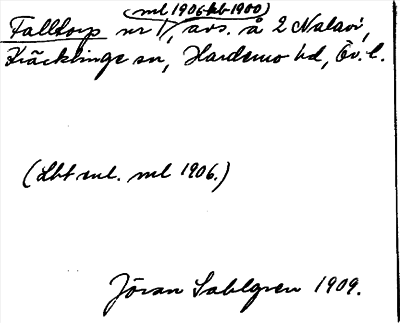 (ml 1906 hb 1900)
Falltorp nr 1, avs. å 2 Nalavi,
Kräcklinge sn, Hardemo hd, Ör. l.
(Lbt enl. ml 1906.)
Jöran Sahlgren 1909.